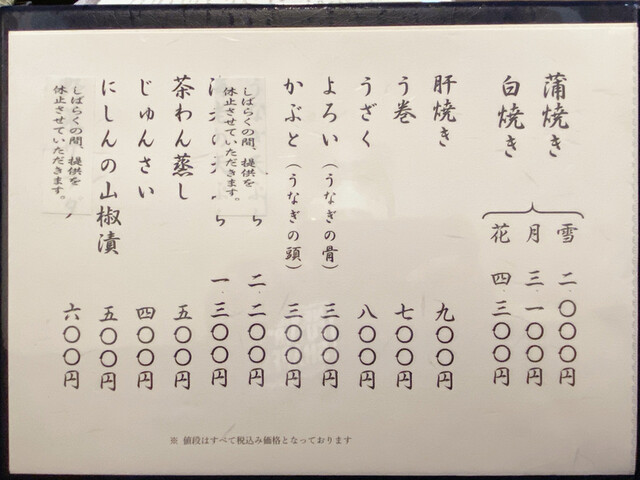 蒲焼き
白焼き
雪 二.〇〇〇円
月 三.一〇〇円
花 四.三〇〇円
肝焼き 九〇〇円
う巻 七〇〇円
うざく 八〇〇円
よろい（うなぎの骨） 三〇〇円
かぶと（うなぎの頭） 三〇〇円
しばらくの間、提供を
休止させていただきます。
二.二〇〇円
一.三〇〇円
茶わん蒸し 五〇〇円
じゅんさい 四〇〇円
にしんの山椒漬 五〇〇円
しばらくの間、提供を
休止させていただきます。
六〇〇円
※ 値段はすべて税込み価格となっております